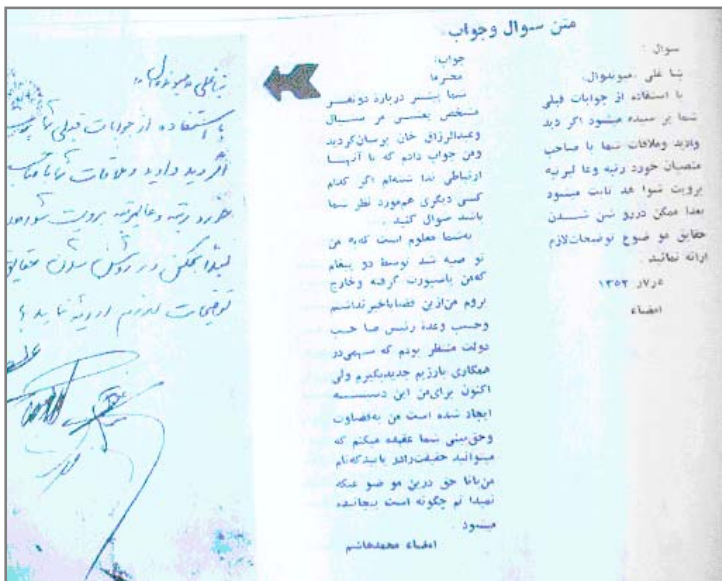 متن سوال وجواب.
سوال :
ښاغلی میوندوال.
با استفاده از جوابات قبلی
شما پر سیده میشود اگر دید
وادید وملاقات شما با صاحب
منصبان خورد رتبه وعا لیرتبه
برویت شوا هد ثابت میشود
بعدا ممکن درروشن شدن
حقایق مو ضوع توضیحات لازم
ارائه نمائید .
۱۳۵۲
امضاء
جواب:
محترما
شما پیشتر درباره دونفر
شخص یعنی هر
وعبدالرزاق خان پرسان کردید
ومن جواب دادم که با آنها
ارتباطی ندا شته‌ام اگر کدام
کسی دیگری هم مورد نظر شما
باشد سوال کنید .
بشما معلوم است که به من
تو صیه شد توسط دو پیغام
که من پاسپورت گرفته وخارج
بروم من ازین قضایا خبر نداشتم
وحسب وعده رئیس صا حب
دولت منتظر بودم که سهمی در
همکاری بارژیم جدید بگیرم ولی
اکنون برای من این دسسه
ایجاد شده است من به قضاوت
وحق بینی شما عقیده میکنم که
میتوانید حقیقت را در یابید که نام
من با نا حق درین مو ضو عیکه
نمیدا نم چگونه است پیچانیده
میشود .
امضاء محمد هاشم
ښاغلی میوندوال
با استفاده از جوابات قبلی شما
اگر دید وادید وملاقات شما با
خورد رتبه وعالیرتبه برویت شواهد
بعدا ممکن در روشن شدن حقایق
توضیحات لازم ارائه نمایید